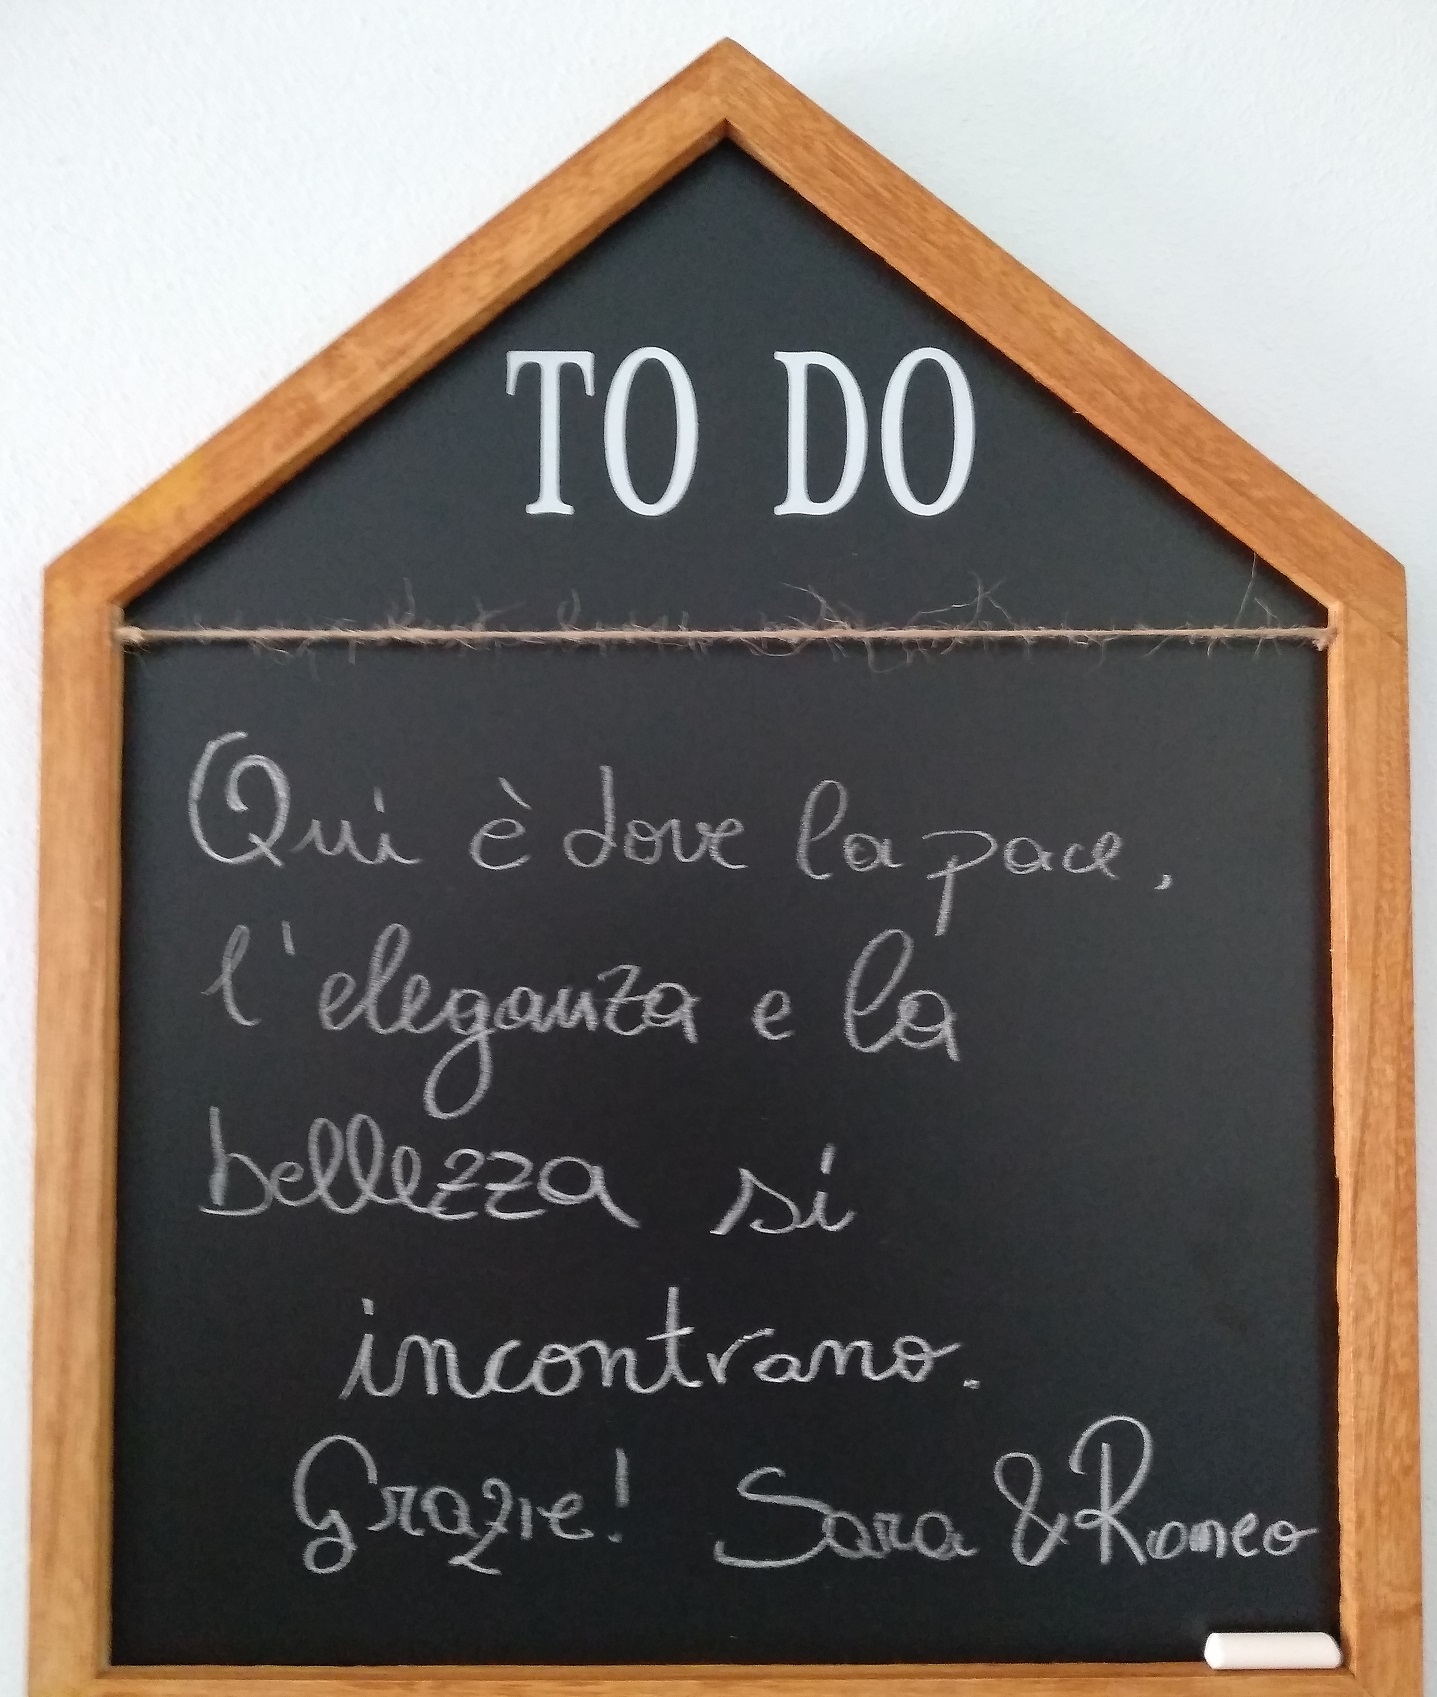 TO DO
Qui è dove la pace,
l'eleganza e la
bellezza si
incontrano.
Grazie! Sara & Romeo